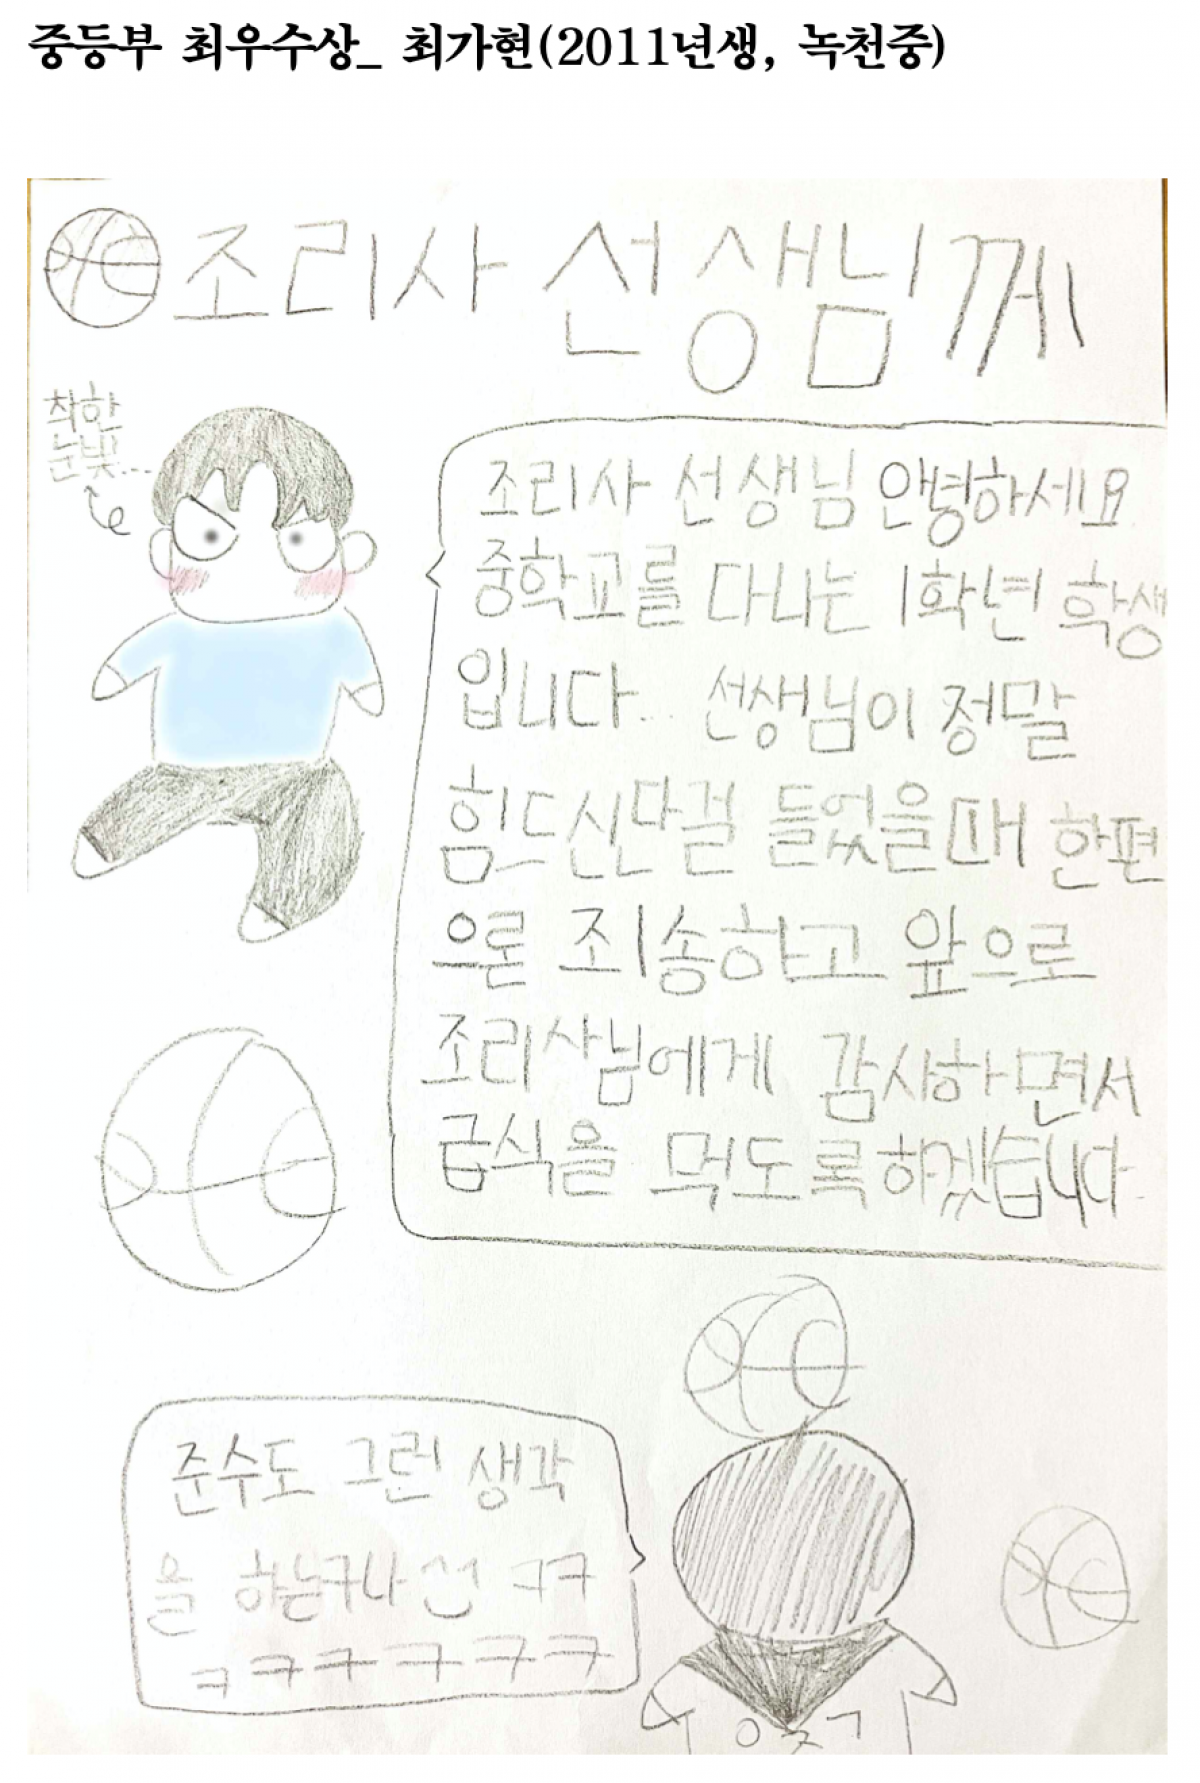 중등부 최우수상_ 최가현(2011년생, 녹천중)
조리사 선생님께
착한
눈빛...
조리사 선생님 안녕하세요
중학교를 다니는 1학년 학생
입니다... 선생님이 정말
힘드신다걸 들었을때 한편
으론 죄송하고 앞으로
조리사님에게 감사하면서
급식을 먹도록하겠습니다.
준수도 그런 생각
을 하는구나 ㅋㅋ
ㅋㅋㅋㅋㅋㅋ